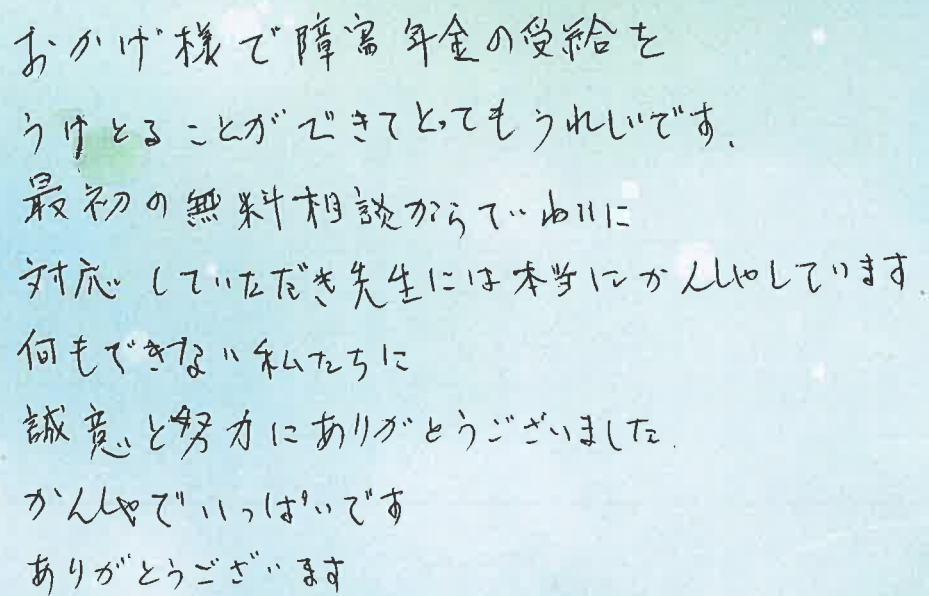 おかげ様で障害年金の受給を
うけとることができてとってもうれしいです.
最初の無料相談からていねいに
対応していただき先生には本当にかんしゃしています.
何もできない私たちに
誠意と努力にありがとうございました.
かんしゃでいっぱいです
ありがとうございます